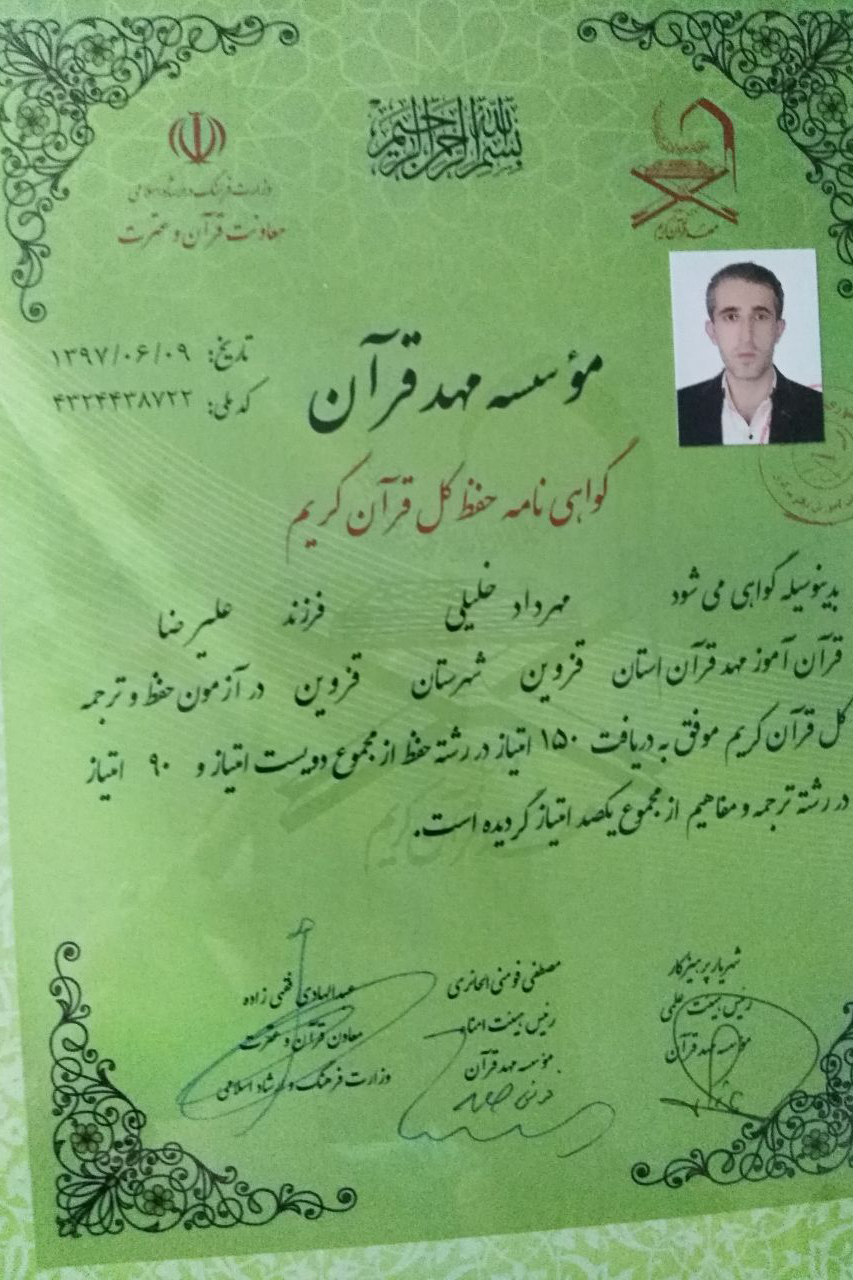 بسم الله الرحمن الرحیم
وزارت فرهنگ و ارشاد اسلامی
معاونت قرآن و عترت
مهد قرآن کریم
تاریخ: ۱۳۹۷/۰۶/۰۹
کد ملی: ۴۳۲۴۴۳۸۷۲۲
مؤسسه مهد قرآن
گواهی نامه حفظ کل قرآن کریم
بدینوسیله گواهی می شود مهرداد خلیلی فرزند علیرضا
قرآن آموز مهد قرآن استان قزوین شهرستان قزوین در آزمون حفظ و ترجمه
کل قرآن کریم موفق به دریافت ۱۵۰ امتیاز در رشته حفظ از مجموع دویست امتیاز و ۹۰ امتیاز
در رشته ترجمه و مفاهیم از مجموع یکصد امتیاز گردیده است.
شهریار پرهیزکار
رئیس هیئت علمی
مؤسسه مهد قرآن
مصطفی فومنی الحائری
رئیس هیئت امناء
مؤسسه مهد قرآن
عبدالهادی فقهی زاده
معاون قرآن و عترت
وزارت فرهنگ و ارشاد اسلامی